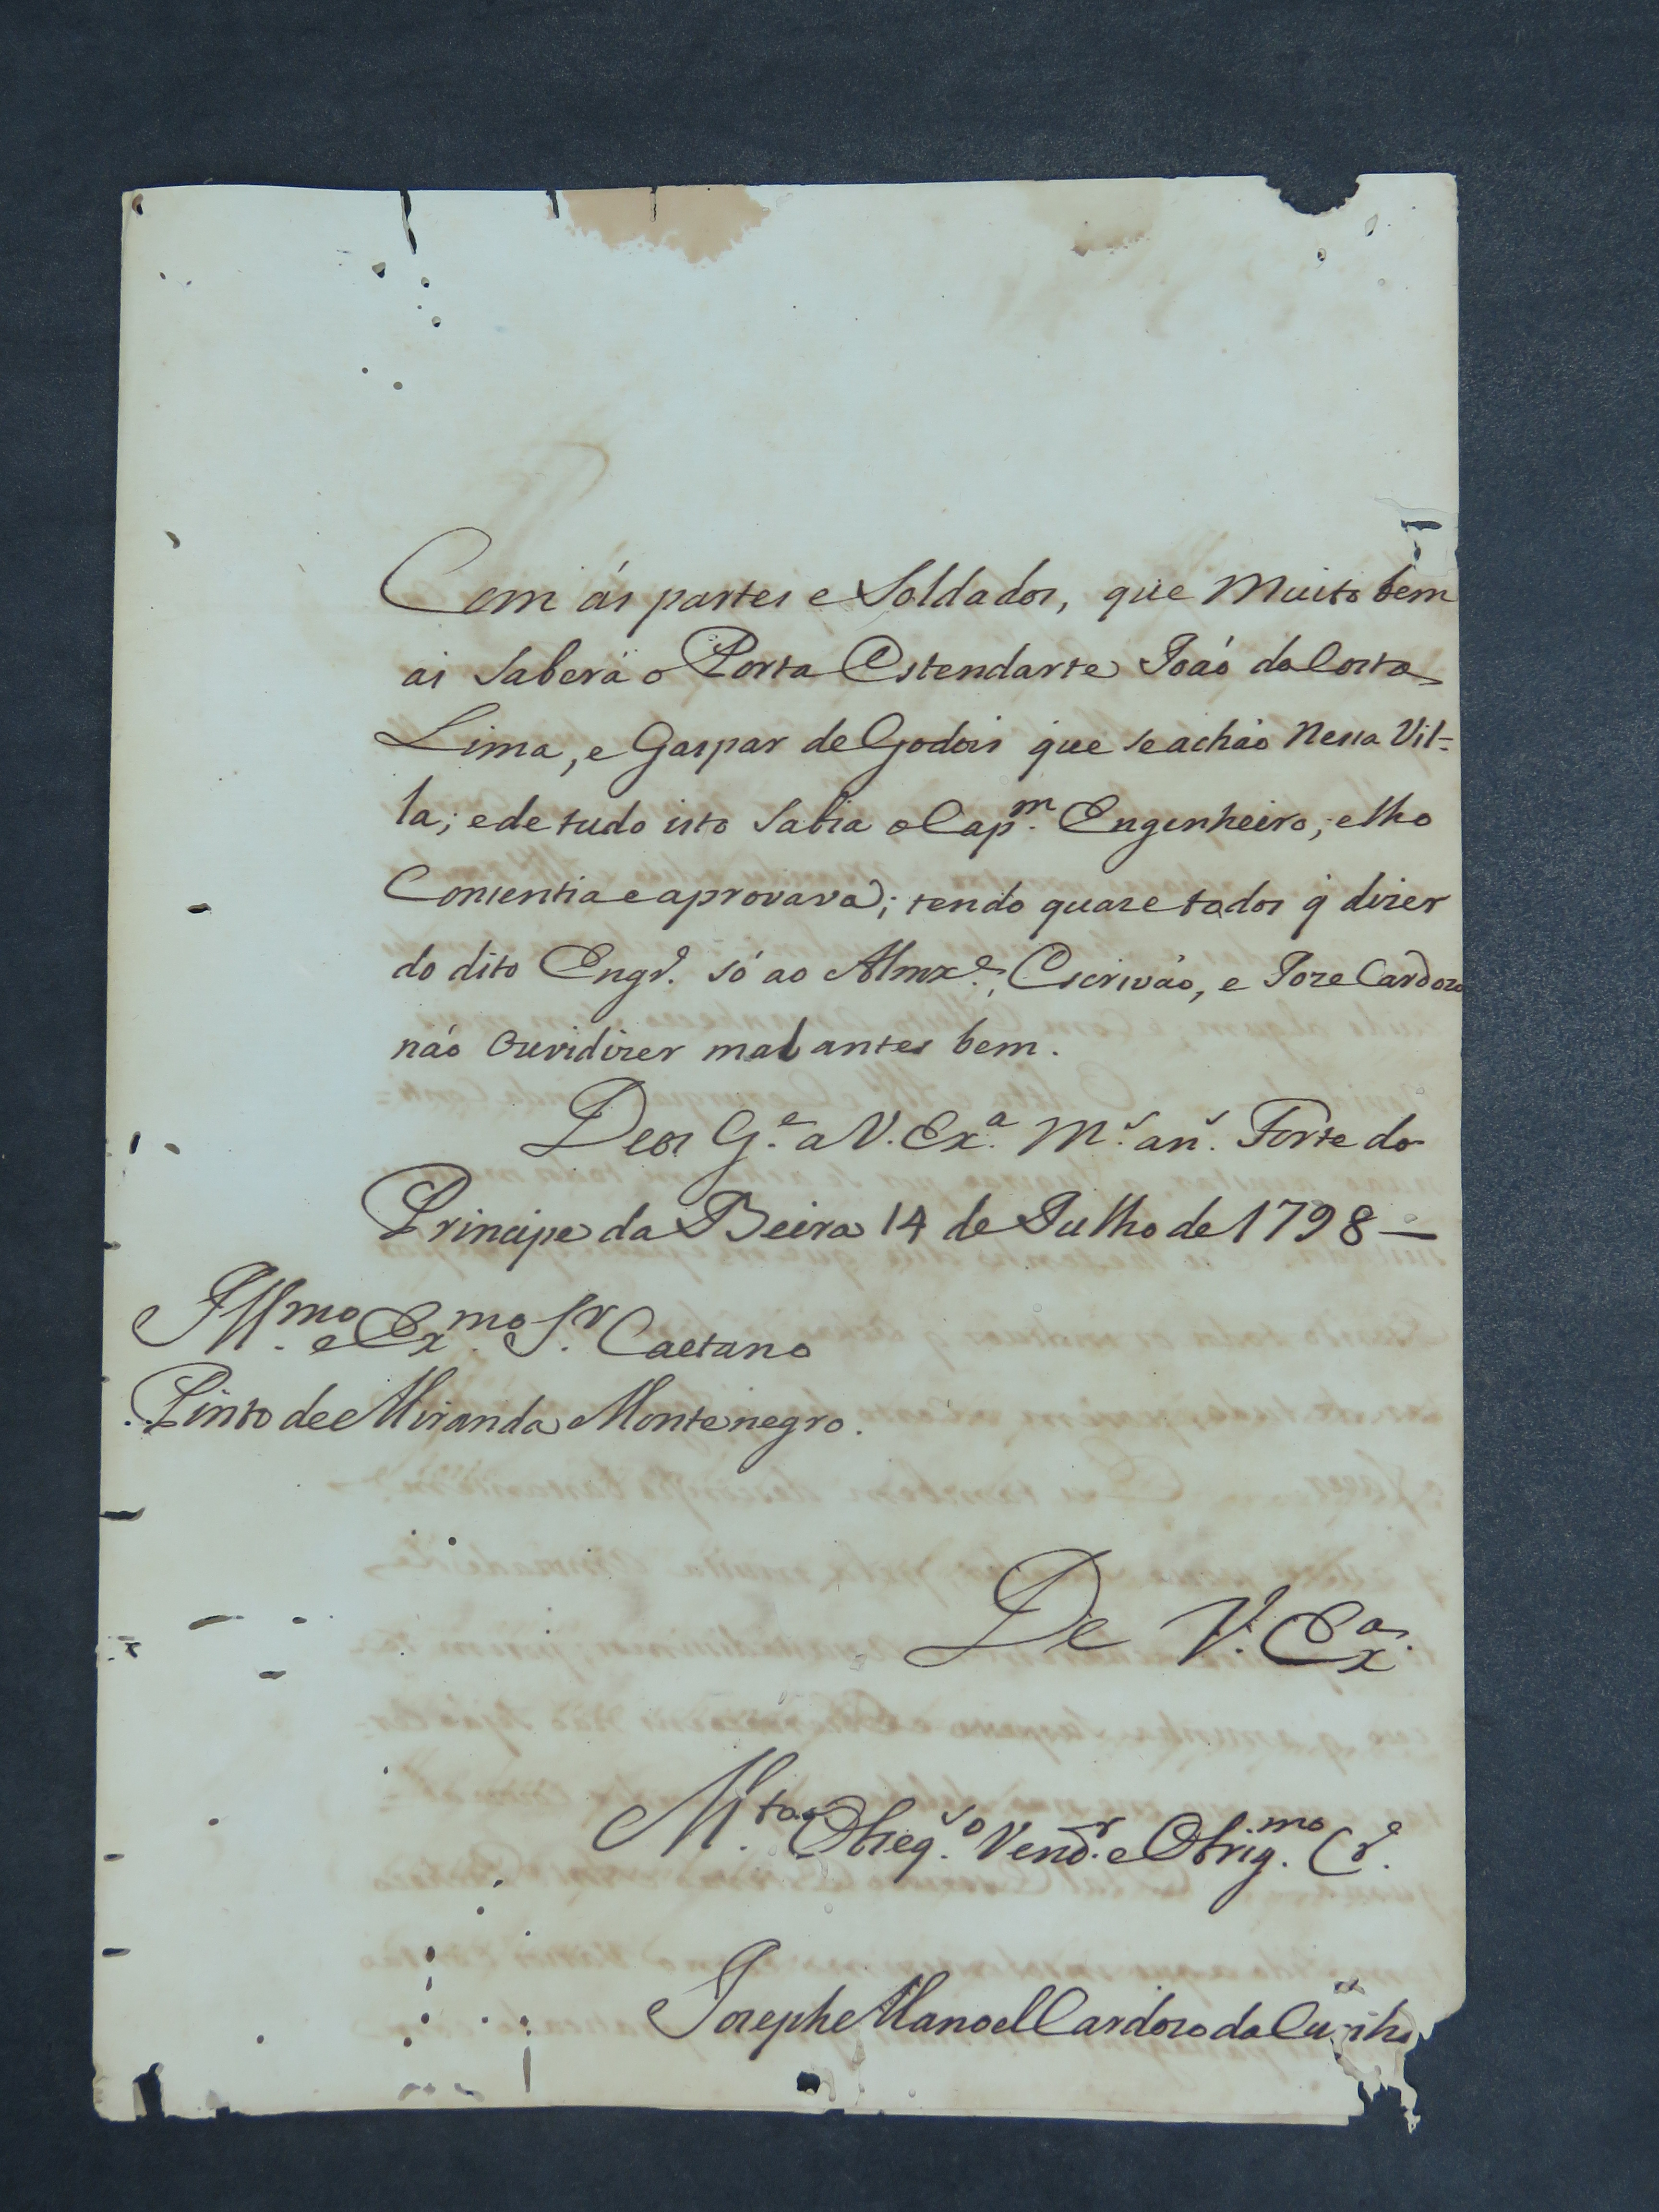 Com ás partes e Soldados, que Muito bem
as Saberá o Porta Estendarte João da Costa
Lima, e Gaspar de Godois que se achão Nessa Vil-
la; e de tudo isto Sabia o Cap.m Engenheiro, e lho
Consentia e aprovava; tendo quaze todos q̃ dizer
do dito Engr.o só ao Almx.e, Escrivão, e Joze Cardozo
não Ouvi dizer mal antes bem.
Deos G.e a V. Ex.a M.s an.s Forte do
Principe da Beira 14 de Julho de 1798 —
Ill.mo e Ex.mo Sr. Caetano
Pinto de Miranda Montenegro.
De V. Ex.a
M.to Obseq.so Vend.r e Obrig.mo Cr.e
Joseph Manoel Cardozo da Cunha